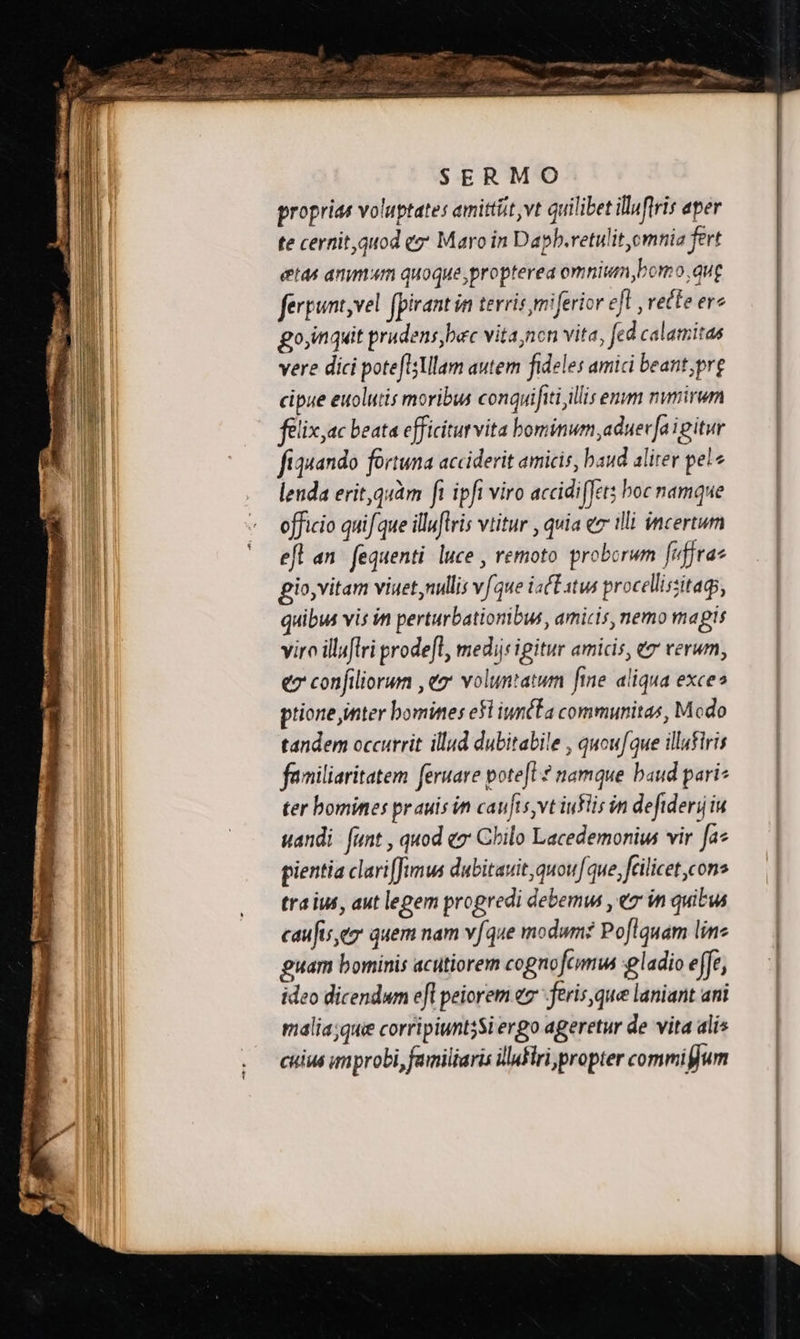 SERMO
proprias voluptates amittūt,vt quilibet illuſtris aper
te cernit,quod & Maro in Daph.retulit,omnia fert
ætas animum quoque,propterea omnium,homo,quę
ſerpunt,vel ſpirant in terris,miſerior eſt , recte er⸗
go,inquit prudens,hæc vita,non vita, ſed calamitas
vere dici poteſt;Illam autem fideles amici beant,prę
cipue euolutis moribus conquiſiti,illis enim nimirum
felix,ac beata efficitur vita hominum,aduerſa igitur
ſiquando fortuna acciderit amicis, haud aliter pel⸗
lenda erit,quàm ſi ipſi viro accidiſſet; hoc namque
officio quiſque illuſtris vtitur , quia & illi incertum
eſt an ſequenti luce , remoto proborum ſuffra⸗
gio,vitam viuet,nullis vſque iactatus procellis;itaq;,
quibus vis in perturbationibus, amicis, nemo magis
viro illuſtri prodeſt, medijs igitur amicis, & rerum,
& conſiliorum , & voluntatum ſine aliqua exce⸗
ptione,inter homines eſt iuncta communitas, Modo
tandem occurrit illud dubitabile , quouſque illuſtris
familiaritatem ſeruare poteſt ? namque haud pari⸗
ter homines prauis in cauſis,vt iuſtis in deſiderij iu
uandi ſunt , quod & Chilo Lacedemonius vir ſa⸗
pientia clariſſimus dubitauit,quouſque,ſcilicet,con⸗
tra ius, aut legem progredi debemus , & in quibus
cauſis,& quem nam vſque modum? Poſtquam lin⸗
guam hominis acutiorem cognoſcimus gladio eſſe,
ideo dicendum eſt peiorem & feris,quæ laniant ani
malia;quæ corripiunt;Si ergo ageretur de vita ali⸗
cuius improbi, familiaris illuſtri,propter commiſſum